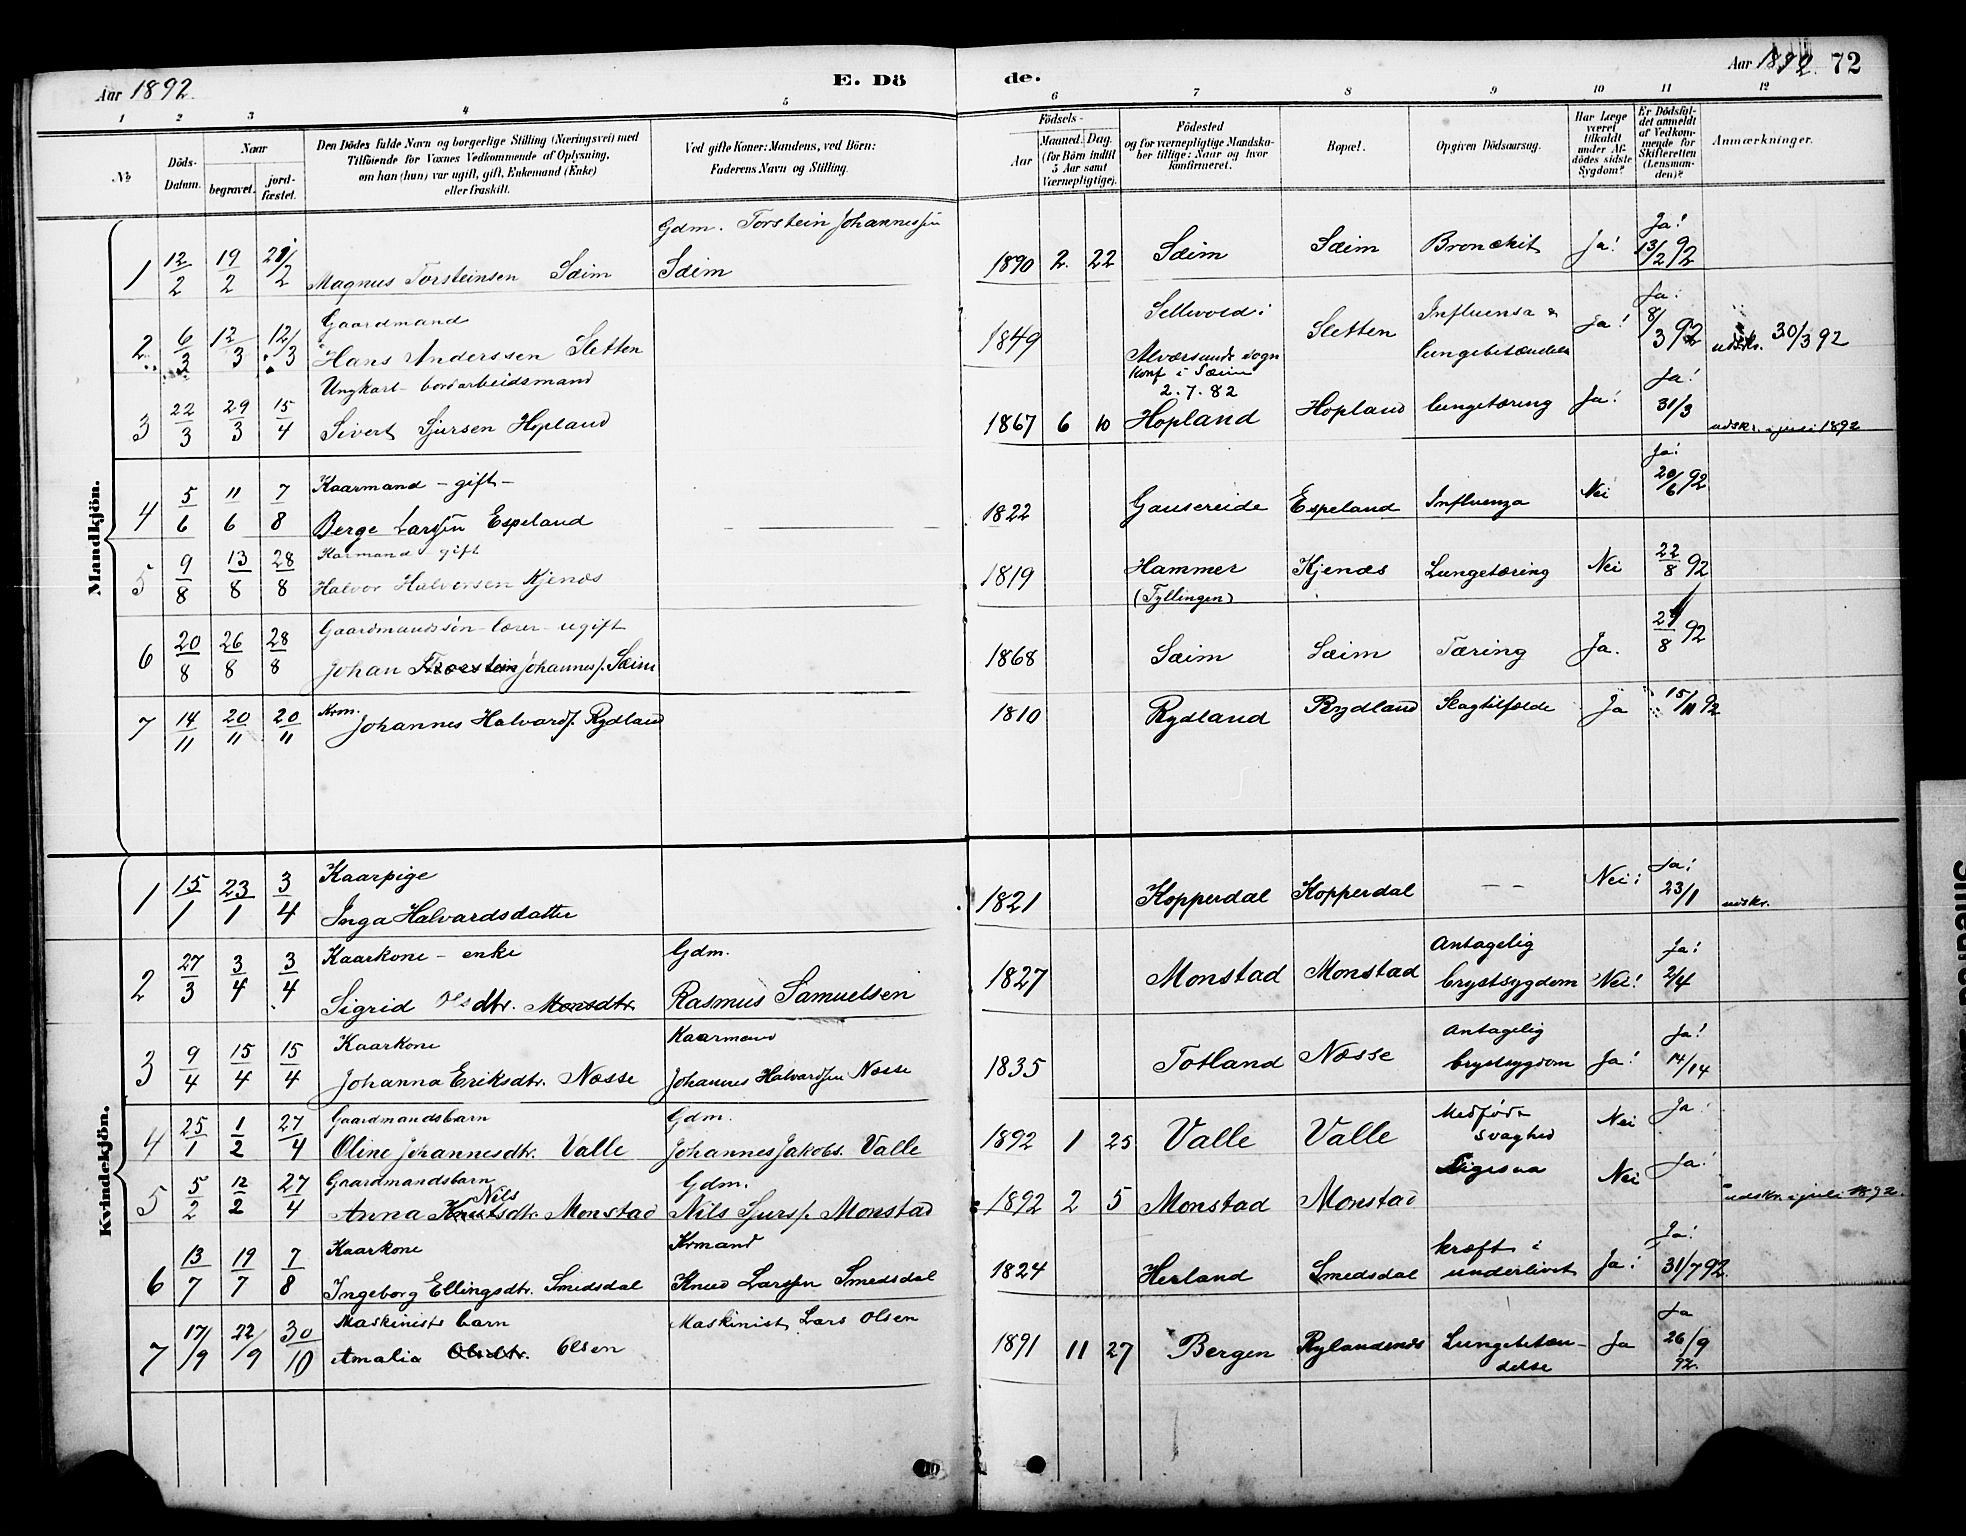 Aar 1892.
E. Dö
de.
Aar 1892. 72
1 2 3 4 5 6 7 8 9 10 11 12
No
Döds-Datum.
Naar
begravet. jordfæstet.
Den Dödes fulde Navn og borgerlige Stilling (Næringsvei) med
Tilføiende for Voxnes Vedkommende af Oplysning,
om han (hun) var ugift, gift, Enkemand (Enke)
eller fraskilt.
Ved gifte Koner: Mandens, ved Börn:
Faderens Navn og Stilling.
Födsels-
Aar Maaned. Dag.
(for Börn indtil 5 Aar samt Værnepligtige).
Födested
og for værnepligtige Mandskaber tillige: Naar og hvor konfirmeret.
Bopæl.
Opgiven Dödsaarsag.
Har Læge været tilkaldt under Afdödes sidste Sygdom?
Er Dödsfaldet anmeldt af Vedkommende for Skifteretten (Lensmanden)?
Anmærkninger.
Mandkjön.
Gdm. Torstein Johannessen
1 12/2 19/2 21/2 Magnus Torsteinsen Sæim Sæim 1890 2. 22 Sæim Sæim Bronckit Ja! Ja! 13/2 92
Gaardmand
2 6/3 12/3 12/3 Hans Anderssen Sletten 1849 Sellevold i Alværsunds sogn Sletten Influensa & lungebetændelse Ja! Ja! 8/3 92 udskr. 30/3 92
Ungkarl - bordarbeidsmand
3 22/3 29/3 15/4 Sivert Sjursen Hopland 1867 6 10 Konf i Sæim 2.7.82 Hopland Hopland lungetæring Ja! Ja! 31/3 udskr. i juli 1892
Kaarmand - gift -
4 5/6 11/6 7/8 Berge Larssen Espeland 1822 Gausereide Espeland Influenza Nei Ja! 20/6 92
Karmand gift
5 9/8 13/8 28/8 Halvor Halvorsen Kjenæs 1819 Hammer (Fyllingen) Kjenæs Lungetæring Nei 22/8 92
Gaardmandssön - lærer - ugift
6 20/8 26/8 28/8 Johan Johanness. Sæim 1868 Sæim Sæim Tæring Ja. 8 92
Krm.
7 14/11 20/11 20/11 Johannes Halvards. Rydland 1810 Rydland Rydland Slagtilfælde Ja 15/11 92
Kvindekjön.
Kaarpige
1 15/1 23/1 3/4 Inga Halvardsdatter 1821 Kopperdal Kopperdal - - Nei! Ja! 23/1 udskr.
Kaarkone - enke Gdm.
2 27/3 3/4 3/4 Sigrid Olsdtr. Monsdtr. Rasmus Samuelsen 1827 Monstad Monstad Antagelig brystsygdom Nei! Ja! 2/4
Kaarkone Kaarmand
3 9/4 15/4 15/4 Johanna Eriksdtr. Næsse Johannes Halvardsen Næsse 1835 Totland Næsse Antagelig brystsygdom Ja! Ja! 14/14
Gaardmandsbarn Gdm.
4 25/1 1/2 27/4 Oline Johannesdtr. Valle Johannes Jakobs. Valle 1892 1 25 Valle Valle Medfødt svaghed Nei Ja!
Gaardmandsbarn Gdm.
5 5/2 12/2 27/4 Anna Knutsdtr. Nils Monstad Nils Sjurs. Monstad 1892 2 5 Monstad Monstad Ligesaa Nei Ja! udskr. i juli 1892.
Kaarkone Krmand
6 13/7 19/7 7/8 Ingeborg Ellingsdtr. Smedsdal Knud Larssen Smedsdal 1824 Herland Smedsdal kræft i underlivet Ja! Ja! 31/7 92
Maskinists barn Maskinist Lars Olsen
7 17/9 22/9 30/10 Amalia Olsdtr. Olsen 1891 11 27 Bergen Rylandsnes Lungebetændelse Ja Ja 26/9 92.